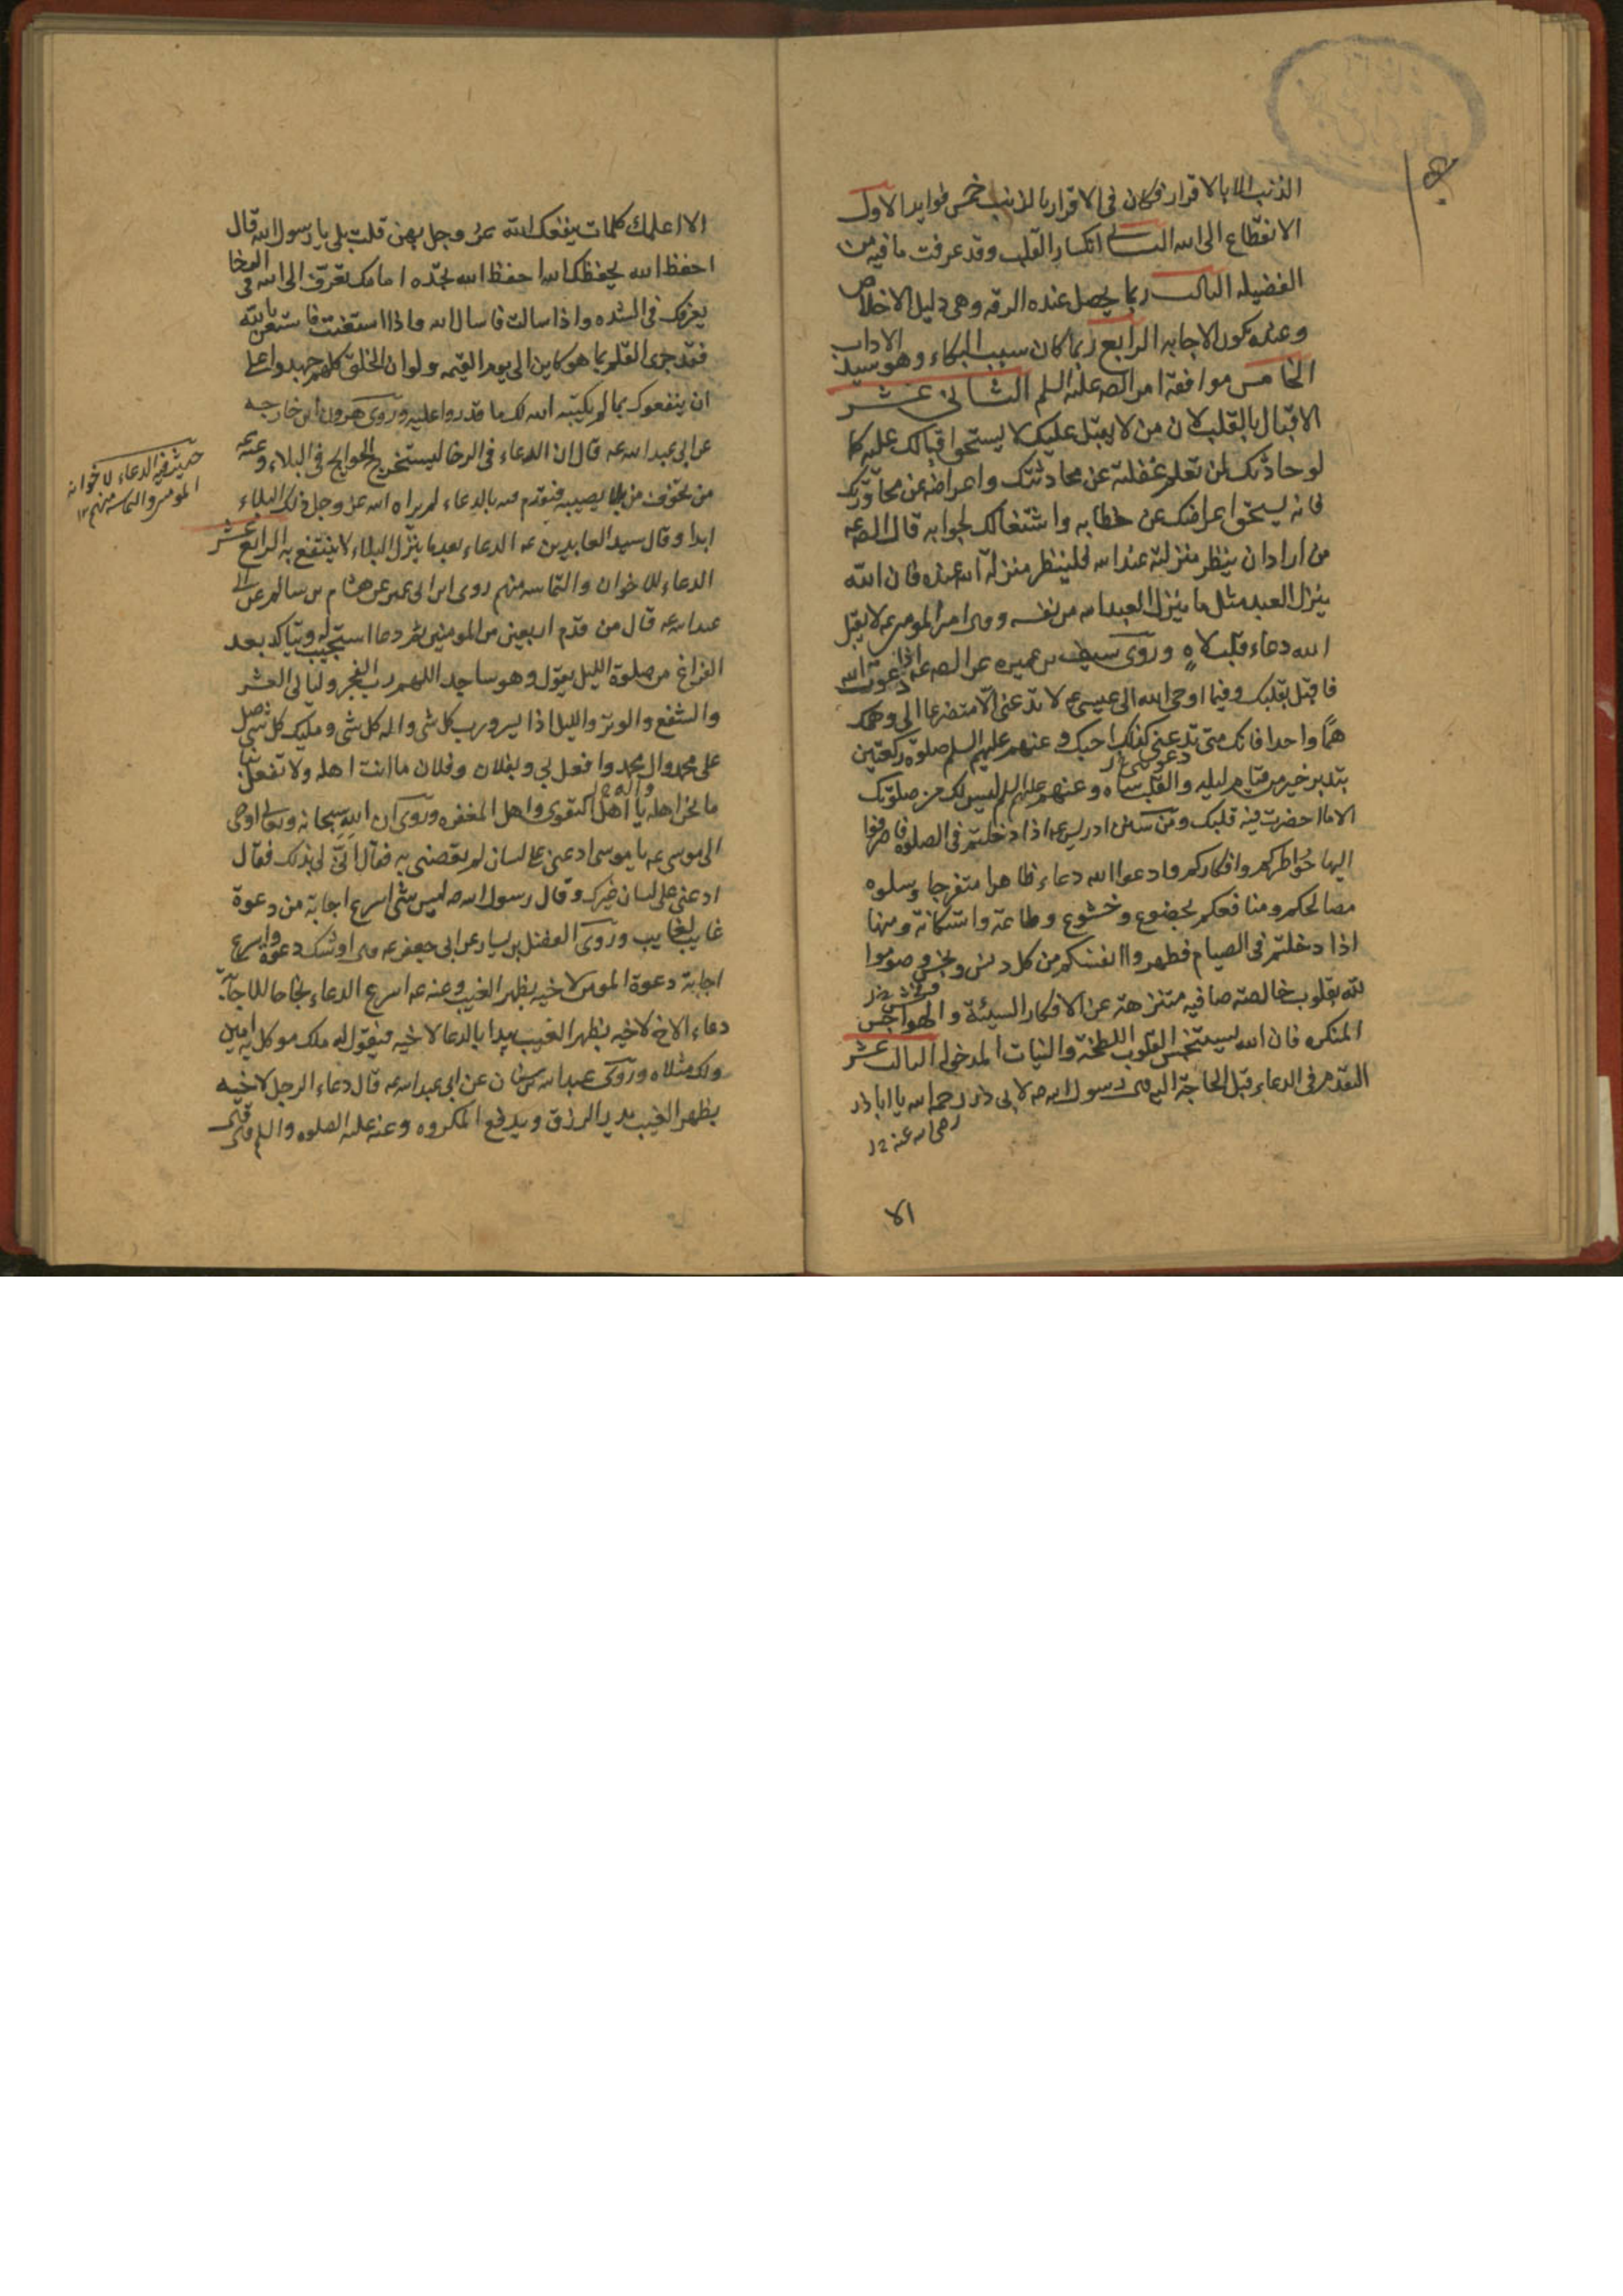 الذنب الا بالاقرار فكان فى الاقرار بالذنب خمس فوايد الاول
الانقطاع الى الله الثانى انكسار القلب وقد عرفت ما فيه من
الفضيله الثالث ربما يحصل عنده الرقه وهى دليل الاخلاص
وعنده يكون الاجابه الرابع ربما كان سبب البكاء وهو سيد الاداب
الخامس موافقة امر الصه عليه السلم الثانى عشر
الاقبال بالقلب لان من لا يقبل عليك لا يستحق اقبالك عليه كما
لو حادثك من تعلم غفلته عن محادثتك واعراضه عن محاورتك
فانه يستحق اعراضك عن خطابه واشتغالك لجوابه قال الصه عه
من اراد ان ينظر منزلته عند الله فلينظر منزلة الله عنده فان الله
ينزل العبد مثل ما ينزل العبد الله من نفسه وقال امير المومنين عه لا يقبل
الله دعاء قلب لاه وروى سيف بن عميره عن الصه عه اذا دعوت الله
فاقبل بقلبك وفيما اوحى الله الى عيسى عه لا تدعنى الا متضرعا الى وهمك
همّا واحدا فانك متى تدعنى كذلك اجبك وعنهم عليهم السلم صلوة ركعتين
بتدبر خير من قيام ليله والقلب ساه وعنهم عليهم السلم ليس لك من صلوتك
الا ما احضرت فيه قلبك ومن سنن ادريس عه اذا دخلتم فى الصلوه فاصرفوا
اليها خواطركم وافكاركم وادعوا الله دعاء ظاهرا متفرجا وسلوه
مصالحكم ومنافعكم بخضوع وخشوع وطاعة واستكانة ومنها
اذا دخلتم فى الصيام فطهروا انفسكم من كل دنس ونجس وصوموا
لله بقلوب خالصة صافيه متنزهة عن الافكار السيئة والهواجس
المنكره فان الله سيستنجس القلوب اللطخة والنيات المدخوله الثالث عشر
التقدم فى الدعاء قبل الحاجة اليه قال رسول الله صه لابى ذر رحمه الله يا ابا ذر
رضى الله عنه ١٢
الا
الا اعلمك كلمات ينفعك الله عز وجل بهن قلت بلى يا رسول الله قال
احفظ الله يحفظك الله احفظ الله تجده امامك تعرّف الى الله فى الرخا
يعرفك فى الشده واذا سالت فاسال الله واذا استعنت فاستعن بالله
فقد جرى القلم بما هو كاين الى يوم القيمه ولو ان الخلق كلهم جهدوا على
ان ينفعوك بما لم يكتبه الله لك ما قدروا عليه وروى هرون ابن خارجه
عن ابى عبد الله عه قال ان الدعاء فى الرخا ليستخرج الحوايج فى البلاء وعنه عه
من تخوف من بلاء يصيبه فتقدم فيه بالدعاء لم يراه الله عز وجل ذلك البلاء
ابدا وقال سيد العابدين عه الدعاء بعد ما ينزل البلاء لا ينتفع به الرابع عشر
الدعاء للاخوان والتماسه منهم روى ابن ابى عمير عن هشام بن سالم عن ابى
عبد الله عه قال من قدم اربعين من المومنين ثم دعا استجيب له ويتاكد بعد
الفراغ من صلوة الليل يقول وهو ساجد اللهم رب الفجر وليالى العشر
والشفع والوتر والليل اذا يسر ورب كل شى واله كل شى ومليك كل شى صل
على محمد وال محمد وافعل بى وبفلان وفلان ما انت اهله ولا تفعل بنا
ما نحن اهله يا اهل التقوى واهل المغفره وروى ان الله سبحانه وتعالى اوحى
الى موسى عه يا موسى ادعنى على لسان لم تعصنى به فقال انّى لى بذلك فقال
ادعنى على لسان غيرك وقال رسول الله صه ليس شى اسرع اجابة من دعوة
غايب لغايب وروى الفضل بن يسار عن ابى جعفر عه قال اوشك دعوة واسرع
اجابة دعوة المومن لاخيه بظهر الغيب وعنه عه اسرع الدعاء نجاحا للاجابة
دعاء الاخ لاخيه بظهر الغيب يبدا بالدعا لاخيه فيقول له ملك موكل به امين
ولك مثلاه وروى عبد الله بن سنان عن ابى عبد الله عه قال دعاء الرجل لاخيه
بظهر الغيب يدر الرزق ويدفع المكروه وعنه عليه الصلوه والسلم
حديث فى الدعاء لاخوانه
المومنين والتماسه منهم ١٢